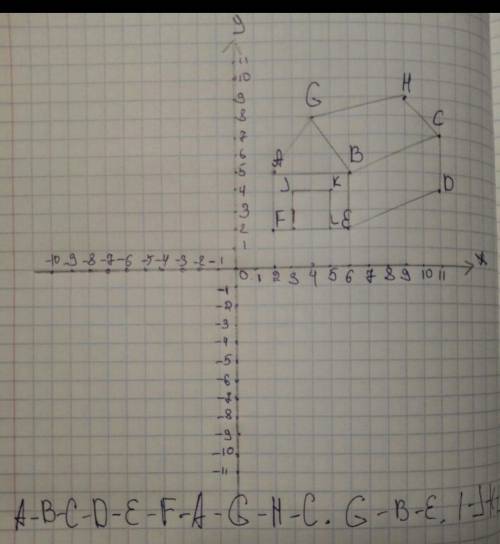 y
11
10
9
8
7
6
5
4
3
2
1
H
G
C
A
B
J K
D
F I L E
-10 -9 -8 -7 -6 -5 -4 -3 -2 -1 0 1 2 3 4 5 6 7 8 9 10 11 x
-1
-2
-3
-4
-5
-6
-7
-8
-9
-10
-11
A-B-C-D-E-F-A-G-H-C. G-B-E. I-J-K